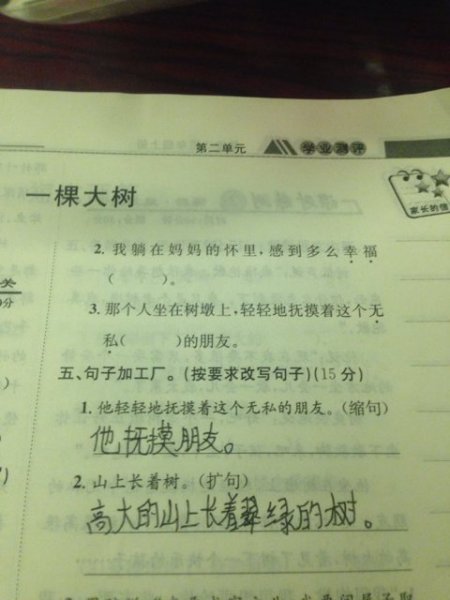 第二单元 学业测评
一棵大树
家长的信
2. 我躺在妈妈的怀里,感到多么幸福
( )。
关
0分
3. 那个人坐在树墩上,轻轻地抚摸着这个无
私( )的朋友。
)
五、句子加工厂。(按要求改写句子)(15分)
1. 他轻轻地抚摸着这个无私的朋友。(缩句)
他抚摸朋友。
)
2. 山上长着树。(扩句)
高大的山上长着翠绿的树。